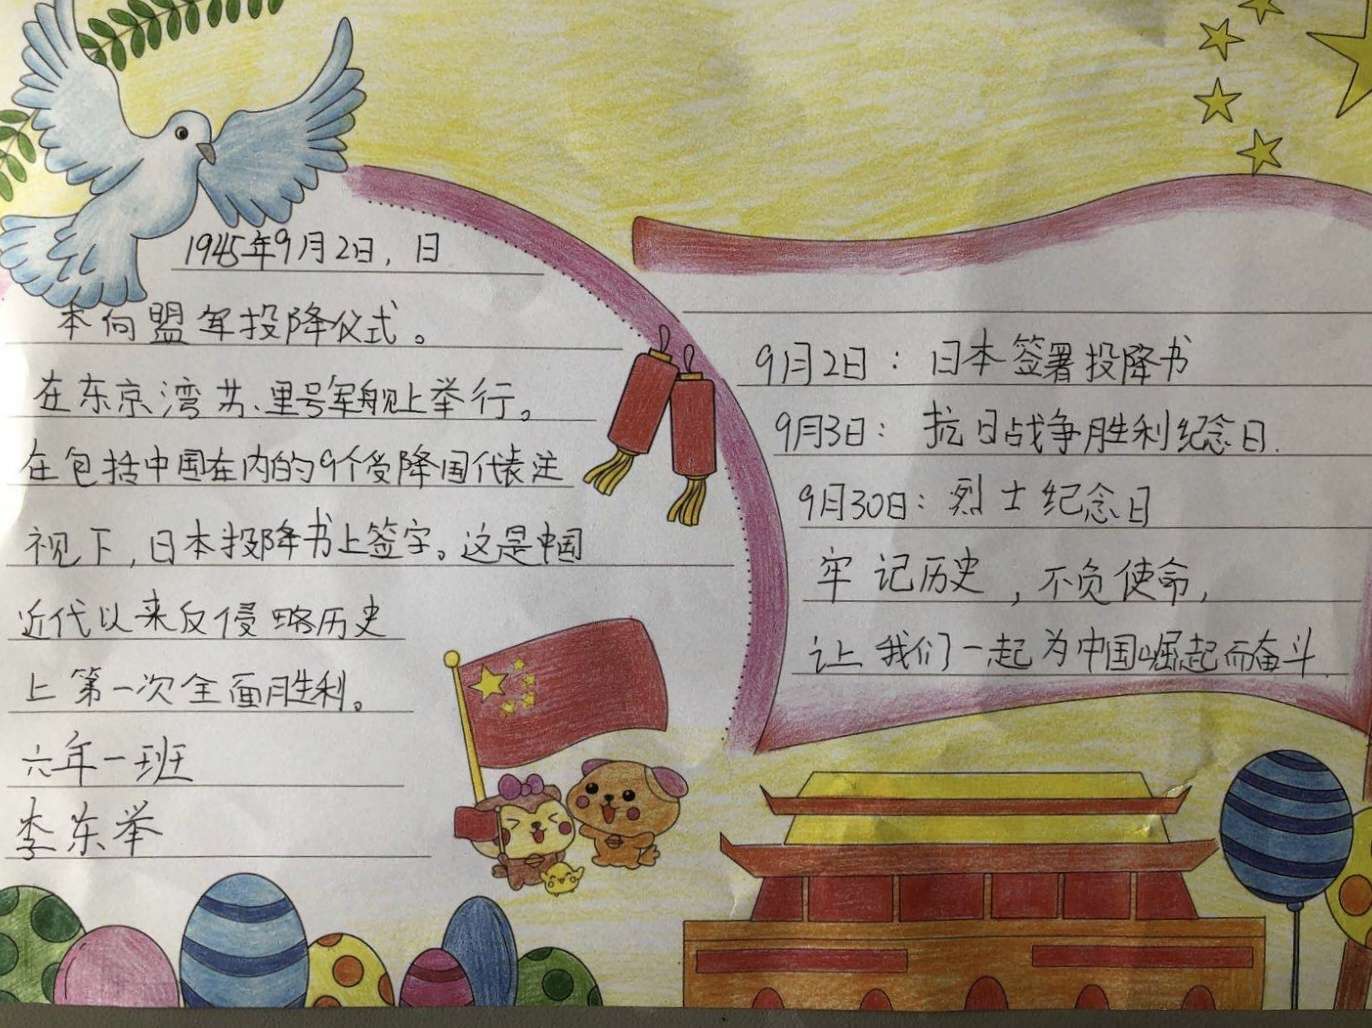 1945年9月2日，日
本向盟军投降仪式。
在东京湾苏、里号军舰上举行。
在包括中国在内的9个受降国代表注
视下，日本投降书上签字。这是中国
近代以来反侵略历史
上第一次全面胜利。
六年一班
李东举
9月2日：日本签署投降书
9月3日：抗日战争胜利纪念日.
9月30日：烈士纪念日
牢记历史，不负使命，
让我们一起为中国崛起而奋斗.